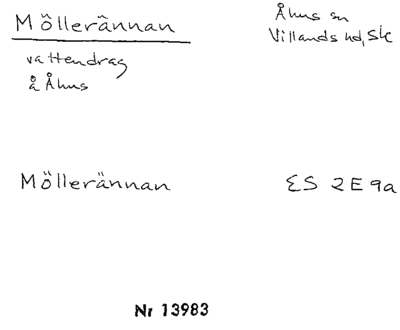 Möllerännan
Åhus sn
Villands hd, Sk
vattendrag
å Åhus
Möllerännan
ES 2E9a
Nr 13983